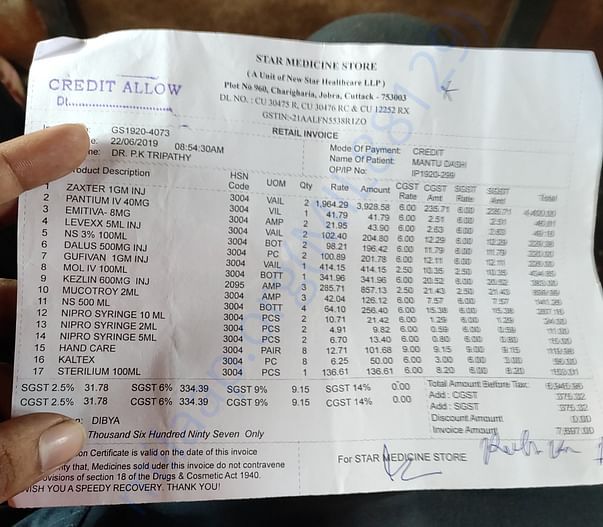 STAR MEDICINE STORE
(A Unit of New Star Healthcare LLP)
Plot No 960, Charigharia, Jobra, Cuttack - 753003
DL NO. : CU 30475 R, CU 30476 RC & CU 12252 RX
GSTIN:-21AALFN5538R1ZO
CREDIT ALLOW
Dt.
RETAIL INVOICE
GS1920-4073
22/06/2019 08:54:30AM
DR. P.K TRIPATHY
Mode Of Payment: CREDIT
Name Of Patient: MANTU DASH
OP/IP No: IP1920-299
Product Description HSN Code UOM Qty Rate Amount CGST Rate CGST Amt SGST Rate SGST Amt Total
1 ZAXTER 1GM INJ 3004 VAIL 2 1,964.29 3,928.58 6.00 235.71 6.00 235.71
2 PANTIUM IV 40MG 3004 VIL 1 41.79 41.79 6.00 2.51 6.00
3 EMITIVA- 8MG 3004 AMP 2 21.95 43.90 6.00 2.63 6.00
4 LEVEXX 5ML INJ 3004 VAIL 2 102.40 204.80 6.00 12.29 6.00
5 NS 3% 100ML 3004 BOT 2 98.21 196.42 6.00 11.79 6.00
6 DALUS 500MG INJ 3004 PC 2 100.89 201.78 6.00 12.11 6.00
7 GUFIVAN 1GM INJ 3004 VAIL 1 414.15 414.15 2.50 10.35 2.50
8 MOL IV 100ML 3004 BOTT 1 341.96 341.96 6.00 20.52 6.00
9 KEZLIN 600MG INJ 3004 AMP 3 285.71 857.13 2.50 21.43 2.50
10 MUCOTROY 2ML 2095 AMP 3 42.04 126.12 6.00 7.57 6.00
11 NS 500 ML 3004 BOTT 4 64.10 256.40 6.00 15.38 6.00
12 NIPRO SYRINGE 10 ML 3004 PCS 2 10.71 21.42 6.00 1.29 6.00
13 NIPRO SYRINGE 2ML 3004 PCS 2 4.91 9.82 6.00 0.59 6.00
14 NIPRO SYRINGE 5ML 3004 PCS 2 6.70 13.40 6.00 0.80 6.00
15 HAND CARE 3004 PAIR 8 12.71 101.68 9.00 9.15 9.00
16 KALTEX 3004 PC 8 6.25 50.00 6.00 3.00 6.00
17 STERILIUM 100ML 3004 PCS 1 136.61 136.61 6.00 8.20 6.00
SGST 2.5% 31.78 SGST 6% 334.39 SGST 9% 9.15 SGST 14% 0.00
CGST 2.5% 31.78 CGST 6% 334.39 CGST 9% 9.15 CGST 14% 0.00
Total Amount Before Tax:
Add : CGST 375.32
Add : SGST 375.32
Discount Amount 0.00
Invoice Amount 7,697.00
DIBYA
Thousand Six Hundred Ninety Seven Only
on Certificate is valid on the date of this invoice
ty that, Medicines sold uder this invoice do not contravene
ovisions of section 18 of the Drugs & Cosmetic Act 1940.
WISH YOU A SPEEDY RECOVERY. THANK YOU!
For STAR MEDICINE STORE